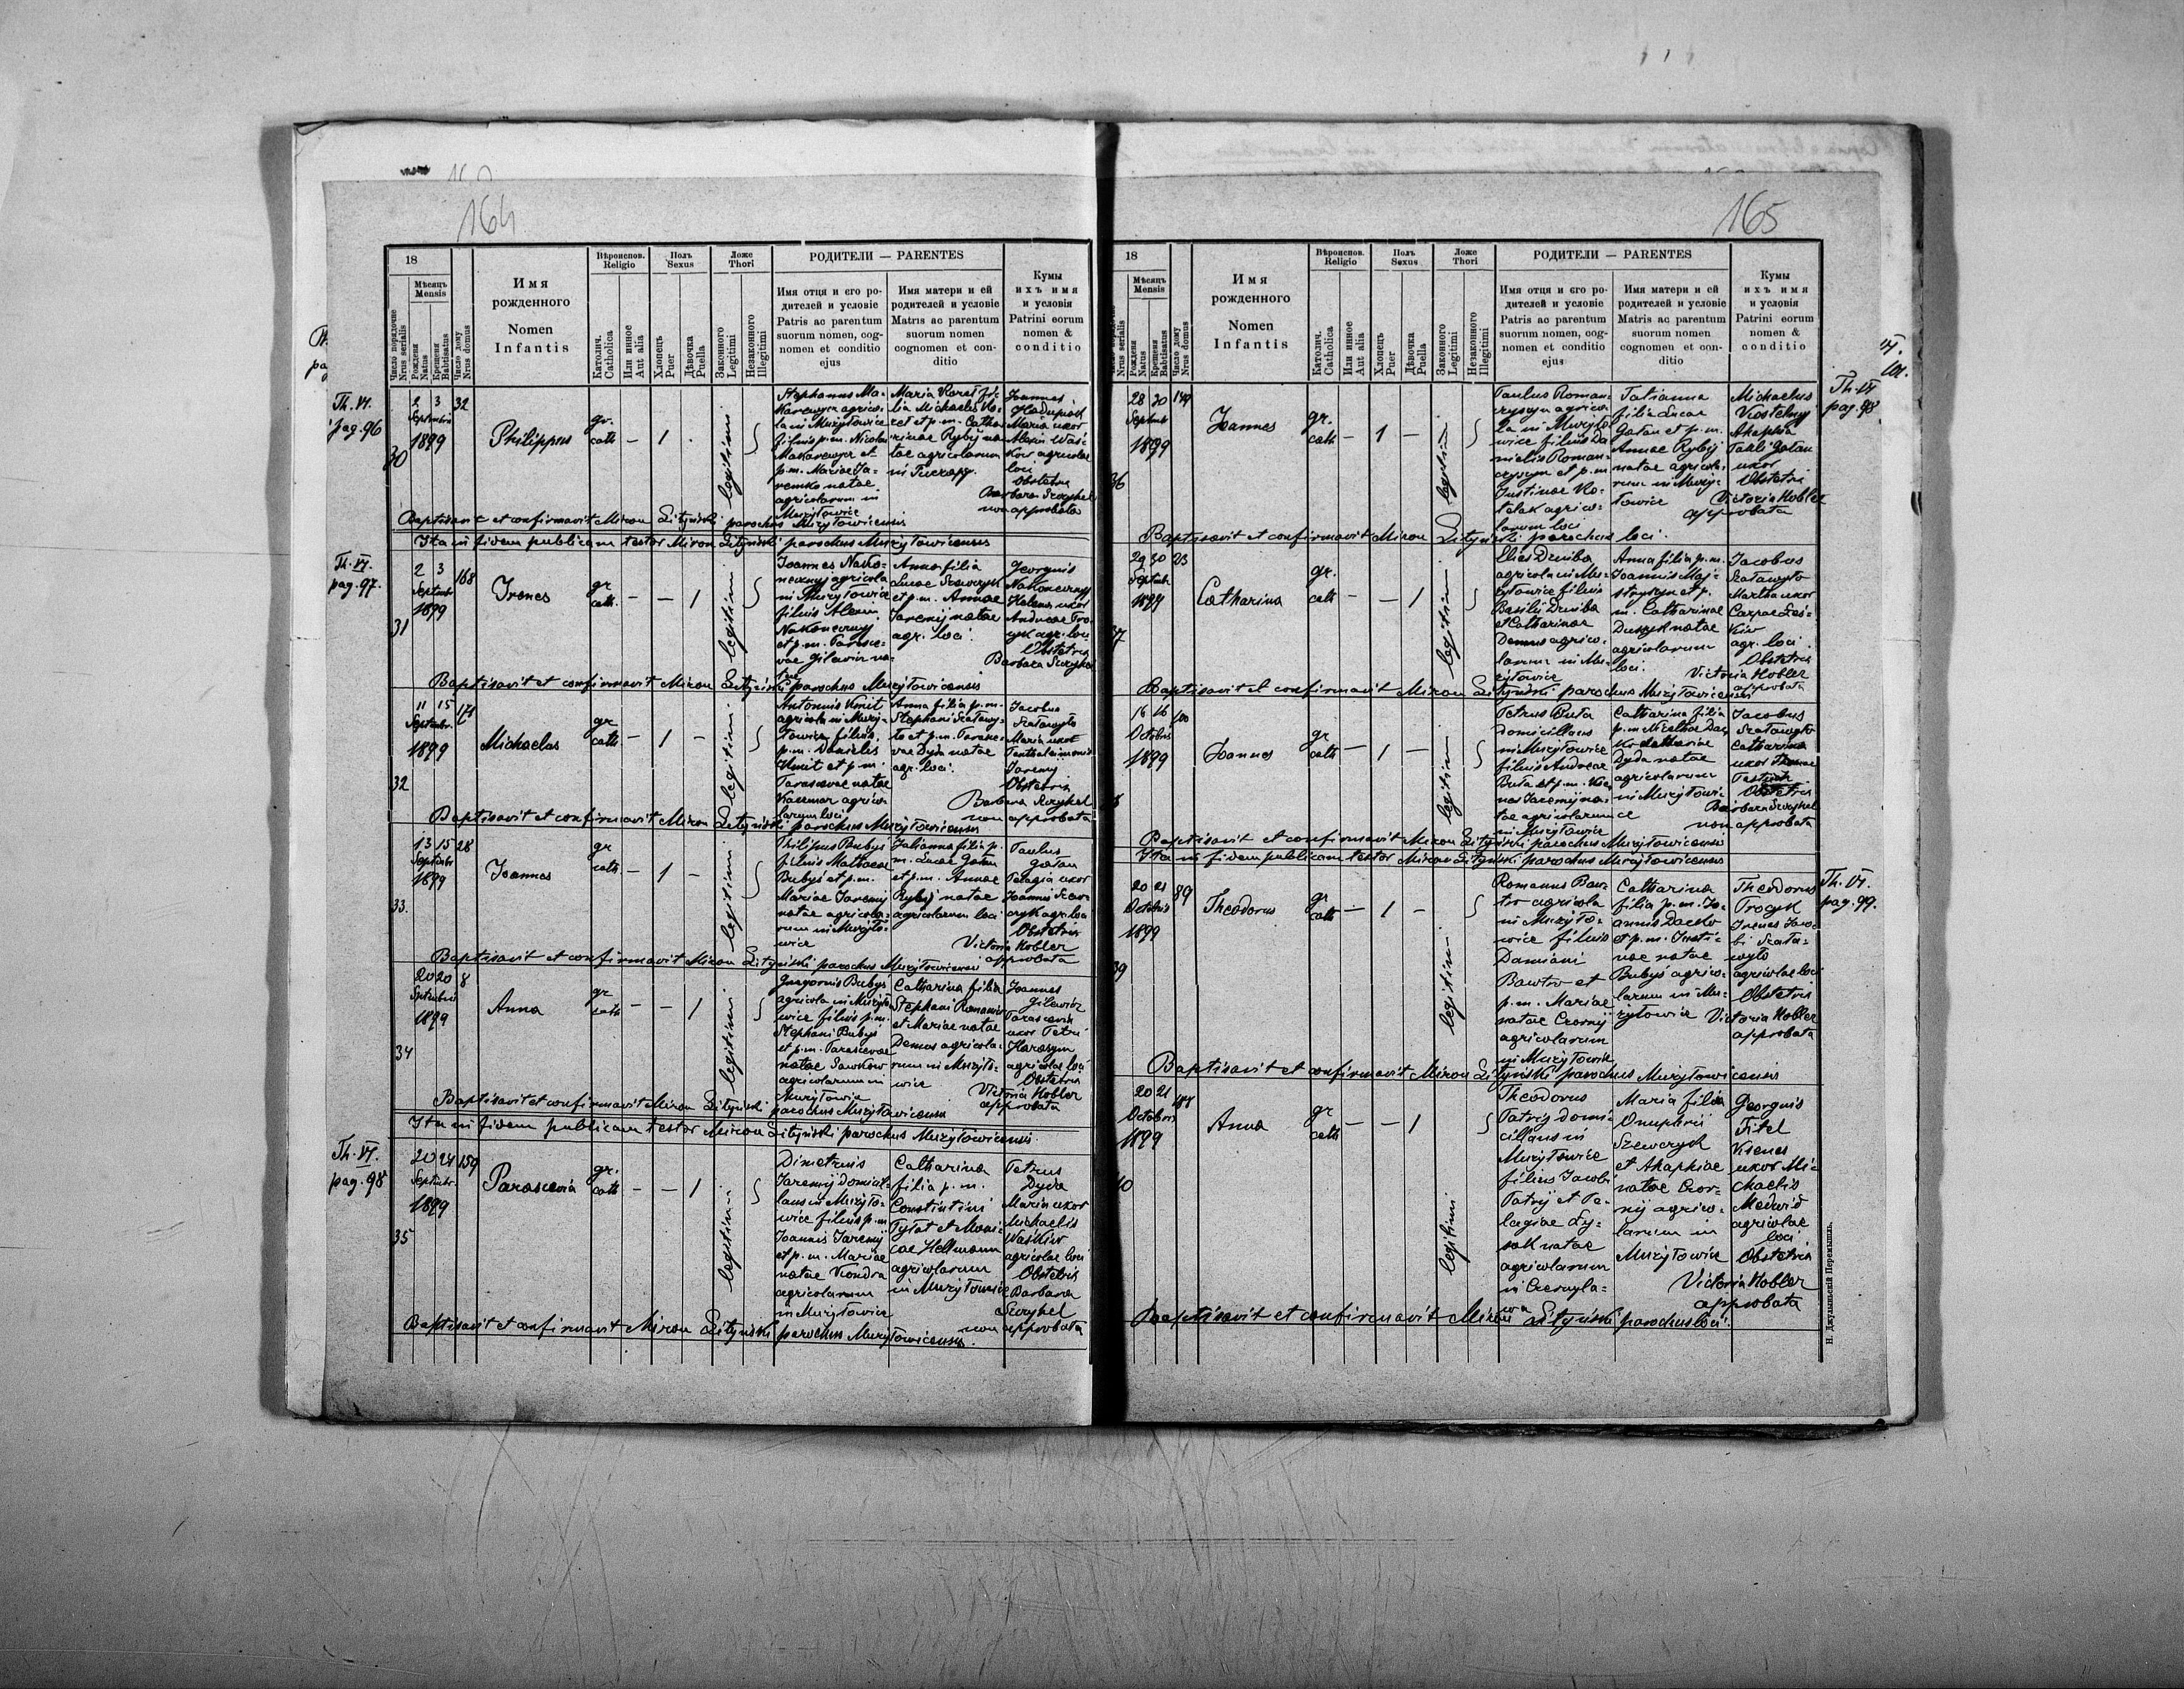 164
18
Мѣсяць
Mensis
Число порядочне
Nrus serialis
Рождена
Natus
Крещена
Babtisatus
Число дому
Nrus domus
Имя
рожденного
Nomen
Infantis
Вѣроиспов.
Religio
Католич.
Catholica
Или инное
Aut alia
Полъ
Sexus
Хлопець
Puer
Дѣвочка
Puella
Ложе
Thori
Законного
Legitimi
Незаконного
Illegitimi
РОДИТЕЛИ — PARENTES
Имя отця и его ро-
дителей и условіе
Patris ac parentum
suorum nomen, cog-
nomen et conditio
ejus
Имя матери и ей
родителей и условіе
Matris ac parentum
suorum nomen
cognomen et con-
ditio
Кумы
ихъ имя
и условія
Patrini eorum
nomen &
conditio
Th. VI.
pag. 96
30
2 3 32
Septembris
1899
Philippus
gr.
cath
— 1 .
legitimi
Stephanus Ma-
karewycz agrico-
la in Mużyłowice
filius p.m. Nicolai
Makarewycz et
p.m. Mariae Ja-
remko natae
agricolarum in
Mużyłowice
Maria Koret fi-
lia Michaelis Ko-
ret et p.m. Catha-
rinae Rybij na-
tae agricolarum
in
Joannes
Maria uxor
Alexii Waś-
kow agricolae
loci
Obstetrix
Barbara Szczykel
non approbata
Baptisavit et confirmavit Miron Lityński parochus Mużyłowicensis
Ita in fidem publicam testor Miron Lityński parochus Mużyłowicensis
Th. VI.
pag. 97.
31
2 3 168
Septembr
1899
Irenes
gr
cath.
— — 1
legitimi
Joannes Nako-
neczny agricola
in Mużyłowice
filius Alexii
Nakoneczny
et p.m. Parasce-
vae Gilewicz na-
tae
Anna filia
Lucae Szewczyk
et p.m. Annae
Jaremij natae
agr. loci
Georgius
Nakoneczny
Helena uxor
Andreae Tro-
cyk agr. loci
Obstetrix
Barbara Szczykel
Baptisavit et confirmavit Miron Lityński parochus Mużyłowicensis
32
11 15
Septembr.
1899
Michaelus
gr
cath
— 1 —
legitimi
Antonius Kmit
agricola in Muży-
łowice filius
p.m. Danielis
Kmit et p.m.
Parascevae natae
Kaczmar agrico-
larum loci
Anna filia p.m.
Stephani Szatawy-
ło et p.m. Parasce-
vae Dyda natae
agr. loci.
Jacobus
Szatawyło
Maria uxor
Panthaleimonis
Jaremij
Obstetrix
Barbara Szczykel
non approbata
Baptisavit et confirmavit Miron Lityński parochus Mużyłowicensis
33.
13 15 28
Septembr
1899
Joannes
gr
cath.
— 1 —
legitimi
Philipus Bubys
filius Mathaeae
Bubyś et p.m.
Mariae Jaremij
natae agricola-
rum in Mużyło-
wice
Julianna filia p.
m. Lucae Gołan
et p.m. Annae
Rybij natae
agricolarum loci
Paulus
Gołan
Pelagia uxor
Joannis Szew-
czyk agr. loci
Obstetrix
Victoria Kobler
approbata
Baptisavit et confirmavit Miron Lityński parochus Mużyłowicensis
34
20 20 8
Septembris
1899
Anna
gr
cath
— — 1
legitimi
Gregorius Bubys
agricola in Mużyło-
wice filius p.m.
Stephani Bubyś
et p.m. Parascevae
natae Sawkow
agricolarum in
Mużyłowice
Catharina filia
Stephani Romanow
et Mariae natae
Demus agricola-
rum in Mużyło-
wice
Joannes
Gilewicz
Parascevia
uxor Petri
Harasym
agricolae loci
Obstetrix
Victoria Kobler
approbata
Baptisavit et confirmavit Miron Lityński parochus Mużyłowicensis
Ita in fidem publicam testor Miron Lityński parochus Mużyłowicensis.
Th. VI.
pag. 98
35
20 24 159
Septembr.
1899
Parascevia
gr.
cath
— — 1
legitimi
Dimetrius
Jaremij domicil-
lans in Mużyło-
wice filius p.m
Joannis Jaremij
et p.m. Mariae
natae Kondra
agricolarum
in Mużyłowice
Catharina
filia p.m.
Constintini
Tyłat et Moni-
cae Hellmann
agricolarum
in Mużyłowice
Petrus
Dyda
Maria uxor
Michaelis
Waśkiw
agricolae loci
Obstetrix
Barbara
Szczykel
non approbata
Baptisavit et confirmavit Miron Lityński parochus Mużyłowicensis.
165
18
Мѣсяць
Mensis
Nrus serialis
Рождена
Natus
Крещена
Babtisatus
Число дому
Nrus domus
Имя
рожденного
Nomen
Infantis
Вѣроиспов.
Religio
Католич.
Catholica
Или инное
Aut alia
Полъ
Sexus
Хлопець
Puer
Дѣвочка
Puella
Ложе
Thori
Законного
Legitimi
Незаконного
Illegitimi
РОДИТЕЛИ — PARENTES
Имя отця и его ро-
дителей и условіе
Patris ac parentum
suorum nomen, cog-
nomen et conditio
ejus
Имя матери и ей
родителей и условіе
Matris ac parentum
suorum nomen
cognomen et con-
ditio
Кумы
ихъ имя
и условія
Patrini eorum
nomen &
conditio
Th. VI
pag. 98
36
28 30 149
Septembr
1899
Joannes
gr.
cath
— 1 —
legitimi
Paulus Roman-
czyszyn agrico-
la in Mużyło-
wice filius Da-
nielis Roman-
czyszyn et p.m
Justinae Ko-
talak agrico-
larum loci
Tatianna
filia Lucae
Gołan et p.m.
Annae Rybij
natae agricola-
rum in Muży-
łowice
Michaelus
Kostelny
Ahaphia
Pauli Gołan
uxor
Obstetrix
Victoria Kobler
approbata
Baptisavit et confirmavit Miron Lityński parochus loci.
37
29 30 23
Septemb.
1899
Catharina
gr.
cath
— — 1
legitimi
Elias Dziuba
agricola in Mu-
żyłowice filius
Basilij Dziuba
et Catharinae
Demus agrico-
larum in Mu-
żyłowice
Anna filia p.m.
Joannis Maj-
stryszyn et p.
m. Catharinae
Duszyk natae
agricolarum
loci.
Jacobus
Szatawyło
Martha uxor
agr. loci
Obstetrix
Victoria Kobler
approbata
Baptisavit et confirmavit Miron Lityński parochus Mużyłowicensis
16 16 100
Octobris
1899
Joannes
gr
cath
— 1 —
legitimi
Petrus Buta
domicillans
in Mużyłowice
filius Andreae
Buta et p.m. Xe-
nae Jaremij na-
tae agricolarum
in Mużyłowice
Catharina filia
p.m Michae Dac-
ko Catharinae
Dyda natae
agricolarum
in Mużyłowi-
ce
Jacobus
Szatawyło
Catharina
uxor Thomae
Obstetrix
Barbara Szczykel
non approbata
Baptisavit et confirmavit Miron Lityński parochus Mużyłowicensis
Ita in fidem publicam testor Miron Lityński parochus Mużyłowicensis
Th. VI.
pag. 99.
39
20 21 89
Octobris
1899
Theodorus
gr
cath
— 1 —
legitimi
Romanus Baw-
tro agricola
in Mużyło-
wice filius
Damiani
Bawtro et
p.m. Mariae
natae Czornij
agricolarum
in Mużyłowice
Catharina
filia p.m. Jo-
annis Dacko
et p.m. Justi-
nae natae
Bubyś agrico-
larum in Mu-
żyłowice
Theodorus
Trocyk
Irenes Jaco-
bi Szata-
wyło
agricolae loci
Obstetrix
Victoria Kobler
approbata
Baptisavit et confirmavit Miron Lityński parochus Mużyłowicensis
40
20 21 188
Octobris
1899
Anna
gr
cath
— — 1
legitimi
Theodorus
Patrij domi-
cillans in
Mużyłowice
filius Jacobi
Patrij et Pe-
lagiae Ły-
sak natae
agricolarum
in Czernyla-
wa
Maria filia
Onuphrii
Szewczyk
et Ahaphiae
natae Czor-
nij agrico-
larum in
Mużyłowice
Georgius
Fitel
Xsenes
uxor Mi-
chaelis
Medwid
agricolae
loci
Obstetrix
Victoria Kobler
approbata
Baptisavit et confirmavit Miron Lityński parochus loci.
Н. Джулыньскій Перемышль.